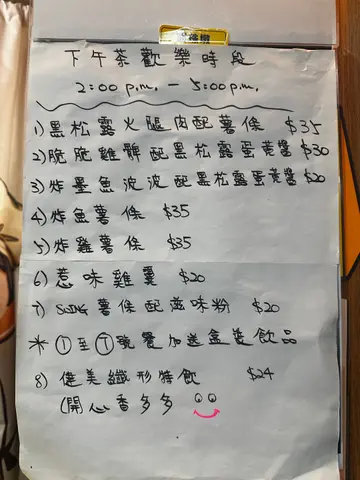 下午茶歡樂時段
2:00 p.m. — 5:00 p.m.
1) 黑松露火腿肉配薯條 $35
2) 脆脆雞髀配黑松露蛋黃醬 $30
3) 炸墨魚波波配黑松露蛋黃醬 $20
4) 炸魚薯條 $35
5) 炸雞薯條 $35
6) 惹味雞翼 $20
7) SWING薯條配滋味粉 $20
* ①至⑦號餐加送盒裝飲品
8) 健美纖形特飲 $24
(開心香多多